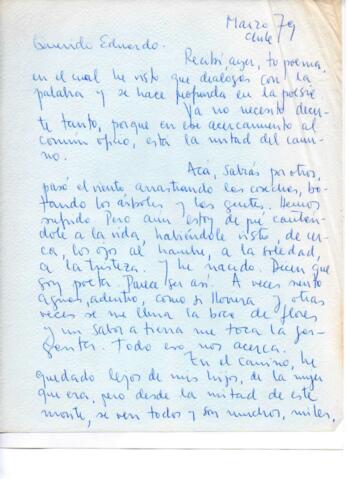 Marzo 79
Chile
Querido Eduardo.
Recibí, ayer, tu poema,
en el cual he visto que dialogas con la
palabra y se hace profunda en la poesía
Ya no necesito decir-
te tanto, porque en ese acercamiento al
común oficio, está la mitad del cami-
no.
Acá, sabrás por otros,
pasó el viento, arrastrando las cosechas, bo-
tando los árboles y las gentes. Hemos
sufrido Pero aún estoy de pié cantán-
dole a la vida, habiéndole visto, de cer-
ca, los ojos al hambre, a la soledad,
a la tristeza. Y he nacido. Dicen que
soy poeta. Parece ser así. A veces siento
aguas, adentro, como si lloviera y otras
veces se me llena la boca de flores
y un sabor a tierra me toca la gar-
ganta. Todo eso nos acerca.
En el camino, he
quedado lejos de mis hijos, de la mujer
que era, pero desde la mitad de este
monte, se ven todos y son muchos, miles.